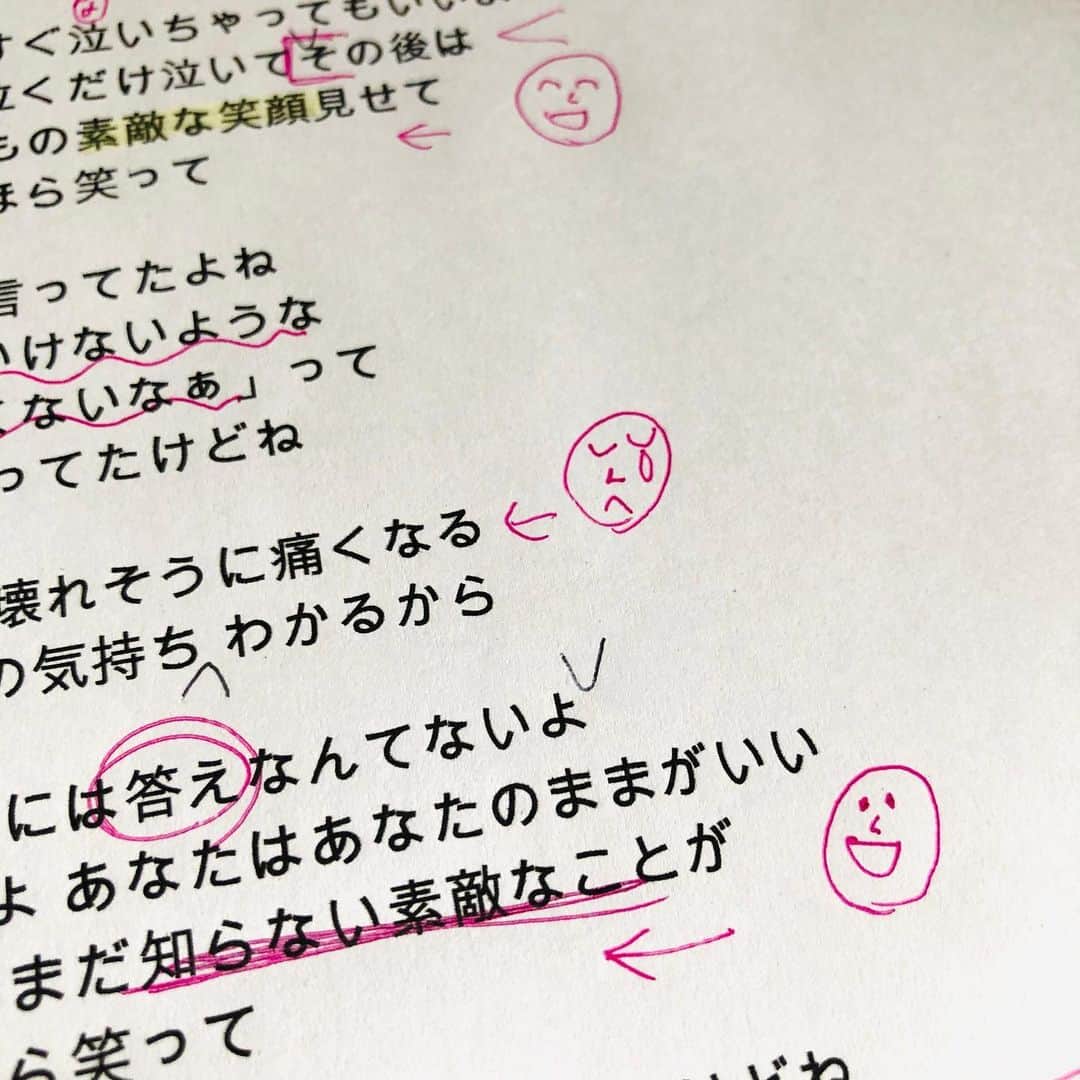 すぐ泣いちゃってもいいよ
泣くだけ泣いてその後は
もの素敵な笑顔見せて
ほら笑って
言ってたよね
いけないような
くないなぁ」って
ってたけどね
壊れそうに痛くなる
の気持ち わかるから
には答えなんてないよ
よ あなたはあなたのままがいい
まだ知らない素敵なことが
ら笑って
けどね